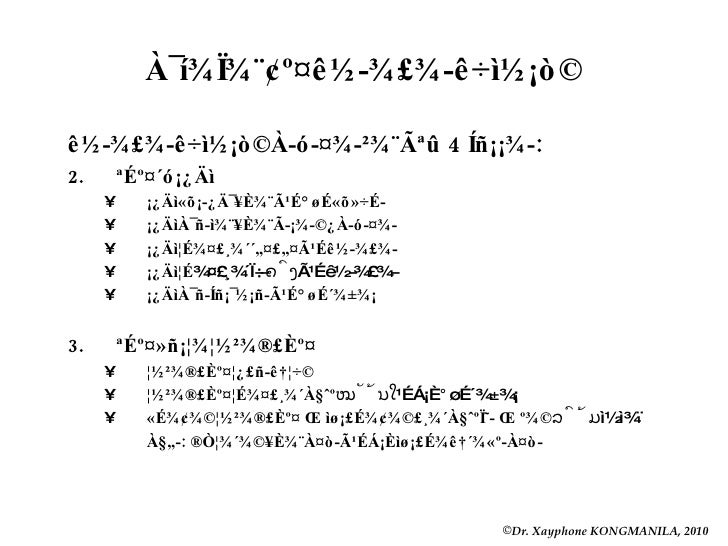 À¯í¾Ï¾¨¢º¤ê½-¾£¾-ê÷ì½¡ò©
ê½-¾£¾-ê÷ì½¡ò©À-ó-¤¾-²¾¨Ãªû 4 Íñ¡¡¾-:
2. ªÉº¤´ó¡¿Äì
• ¡¿Äì«õ¡-¿Ä¯¥È¾¨Ã¹É° øÉ«õ»÷É-
• ¡¿ÄìÀ¯ñ-ì¾¨¥È¾¨Ã-¡¾-©¿À-ó-¤¾-
• ¡¿Äì¦É¾¤£¸¾´´„¤£„¤Ã¹Éê½-¾£¾-
• ¡¿ÄìÀ¯ñ-Íñ¡¯½¡ñ-Ã¹É° øÉ´¾±¾¡
3. ªÉº¤»ñ¡¦¾¦½²¾®£Èº¤
• ¦½²¾®£Èº¤¦¿£ñ-ê†¦÷©
• ¦½²¾®£Èº¤¦É¾¤£¸¾´À§ˆº
• «É¾¢¾©¦½²¾®£Èº¤ Œ ìø¡£É¾¢¾©£¸¾´À§ˆº
À§„-: ®Ò¦¾´¾©¥È¾¨À¤ò-Ã¹ÉÁ¡Èìø¡£É¾ê†´¾«º-À¤ò-
©Dr. Xayphone KONGMANILA, 2010